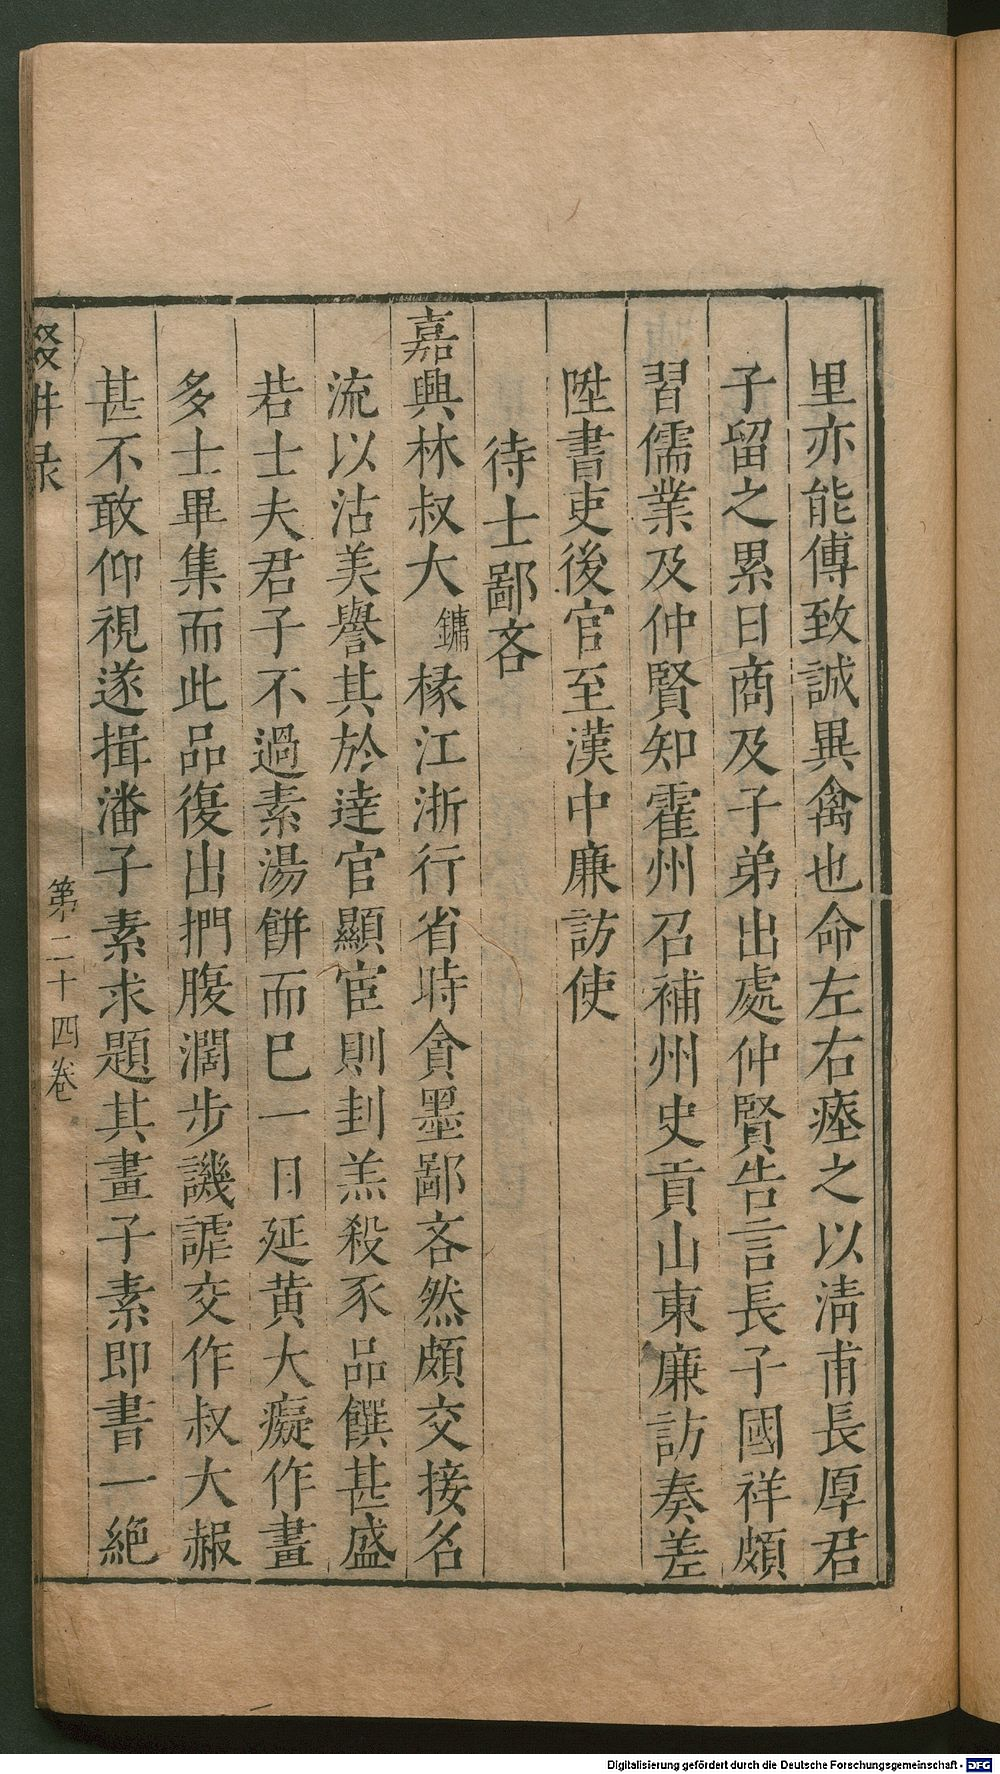 里亦能傳致誠異禽也命左右瘞之以淸甫長厚君
子留之累日商及子弟出處仲賢告言長子國祥頗
習儒業及仲賢知霍州召補州史貢山東廉訪奏差
陞書吏後官至漢中廉訪使
待士鄙吝
嘉興林叔大鏞椽江浙行省時貪墨鄙吝然頗交接名
流以沽美譽其於達官顯宦則刲羔殺豕品饌甚盛
若士夫君子不過素湯餅而已一日延黄大癡作畫
多士畢集而此品復出捫腹濶步譏謔交作叔大赧
甚不敢仰視遂揖潘子素求題其畫子素即書一絶
輟耕录
第二十四卷
Digitalisierung gefördert durch die Deutsche Forschungsgemeinschaft - DFG